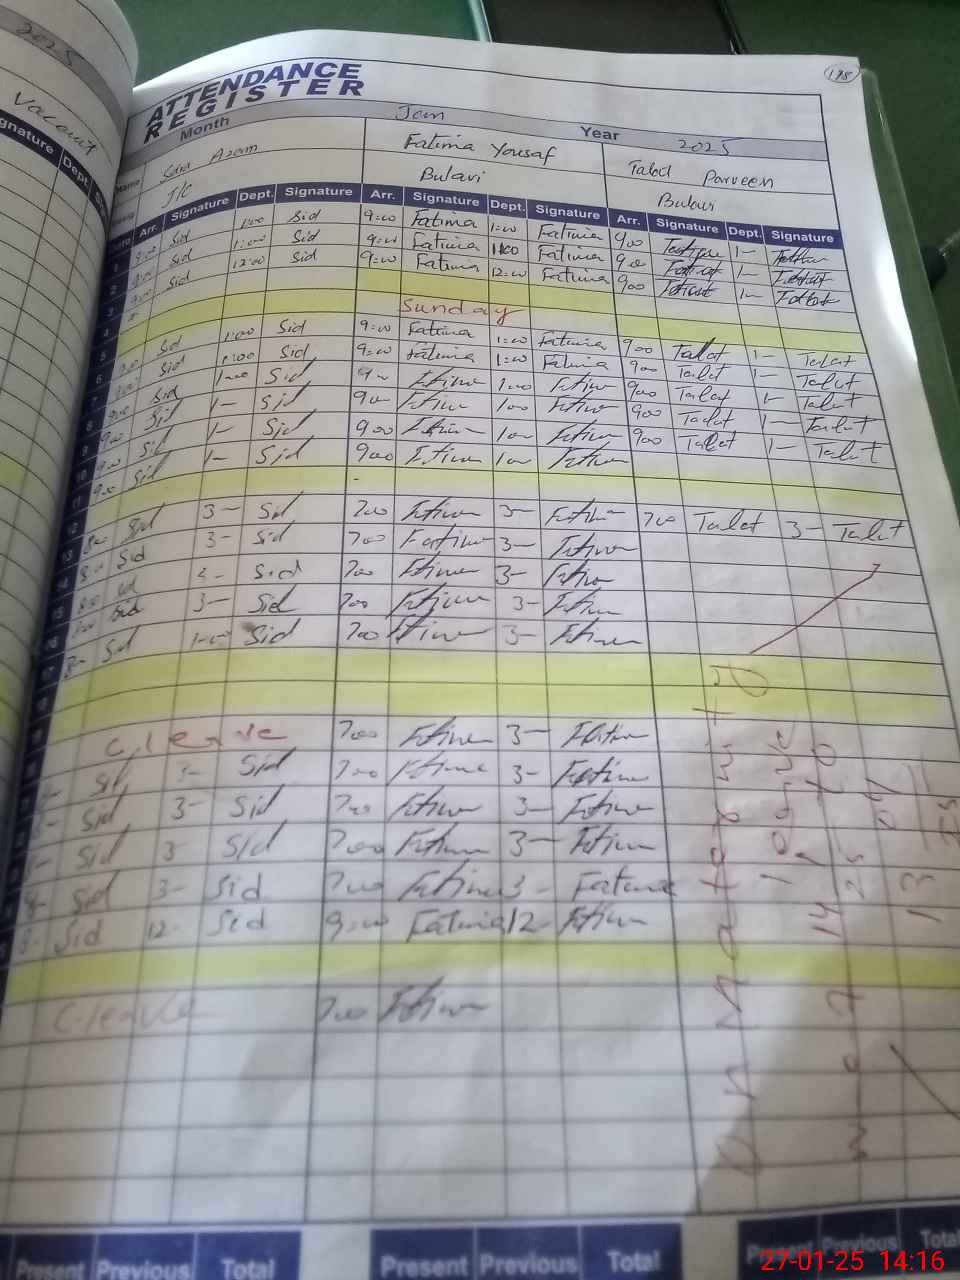 2025
Vacant
Signature Dept.
198
ATTENDANCE
REGISTER
Month Jan Year 2025
Name Azam Fatima Yousaf Talat Parveen
J/C Bulavi Bulavi
Arr. Signature Dept. Signature Arr. Signature Dept. Signature Arr. Signature Dept. Signature
1 9:00 Sid 1:00 Sid 9:00 Fatima 1:00 Fatima 900 1-
2 9:00 Sid 1:00 Sid 9:00 Fatima 1:00 Fatima 900 1-
3 9:00 Sid 12:00 Sid 9:00 Fatima 12:00 Fatima 900 1-
4
5 Sunday
6 9:00 Sid 1:00 Sid 9:00 Fatima 1:00 Fatima 900 Talat 1- Talat
7 9:00 Sid 1:00 Sid 9:00 Fatima 1:00 Fatima 900 Talat 1- Talat
8 900 Sid 1:00 Sid 900 Fatima 100 Fatima 900 Talat 1- Talat
9 900 Sid 1- Sid 900 Fatima 100 Fatima 900 Talat 1- Talat
10 900 Sid 1- Sid 900 Fatima 100 Fatima 900 Talat 1- Talat
11 900 Sid 1- Sid 900 Fatima 100 Fatima
12
13 800 Sid 3- Sid 700 Fatima 3- Fatima 700 Talat 3- Talat
14 800 Sid 3- Sid 700 Fatima 3- Fatima
15 800 Sid 3- Sid 700 Fatima 3- Fatima
16 800 Sid 3- Sid 700 Fatima 3- Fatima
17 8- Sid 1:00 Sid 700 Fatima 3- Fatima
18
C. leave 700 Fatima 3- Fatima
Sid 3- Sid 700 Fatima 3- Fatima
8- Sid 3- Sid 700 Fatima 3- Fatima
8- Sid 3- Sid 700 Fatima 3- Fatima
8- Sid 3- Sid 700 Fatima 3- Fatima
8- Sid 12- Sid 9:00 Fatima 12- Fatima
C. leave 700 Fatima
On Maternity
leave
w.e.f 14 1 25 to
13 04 25
Present Previous Total Present Previous Total Present Previous Total
27-01-25 14:16